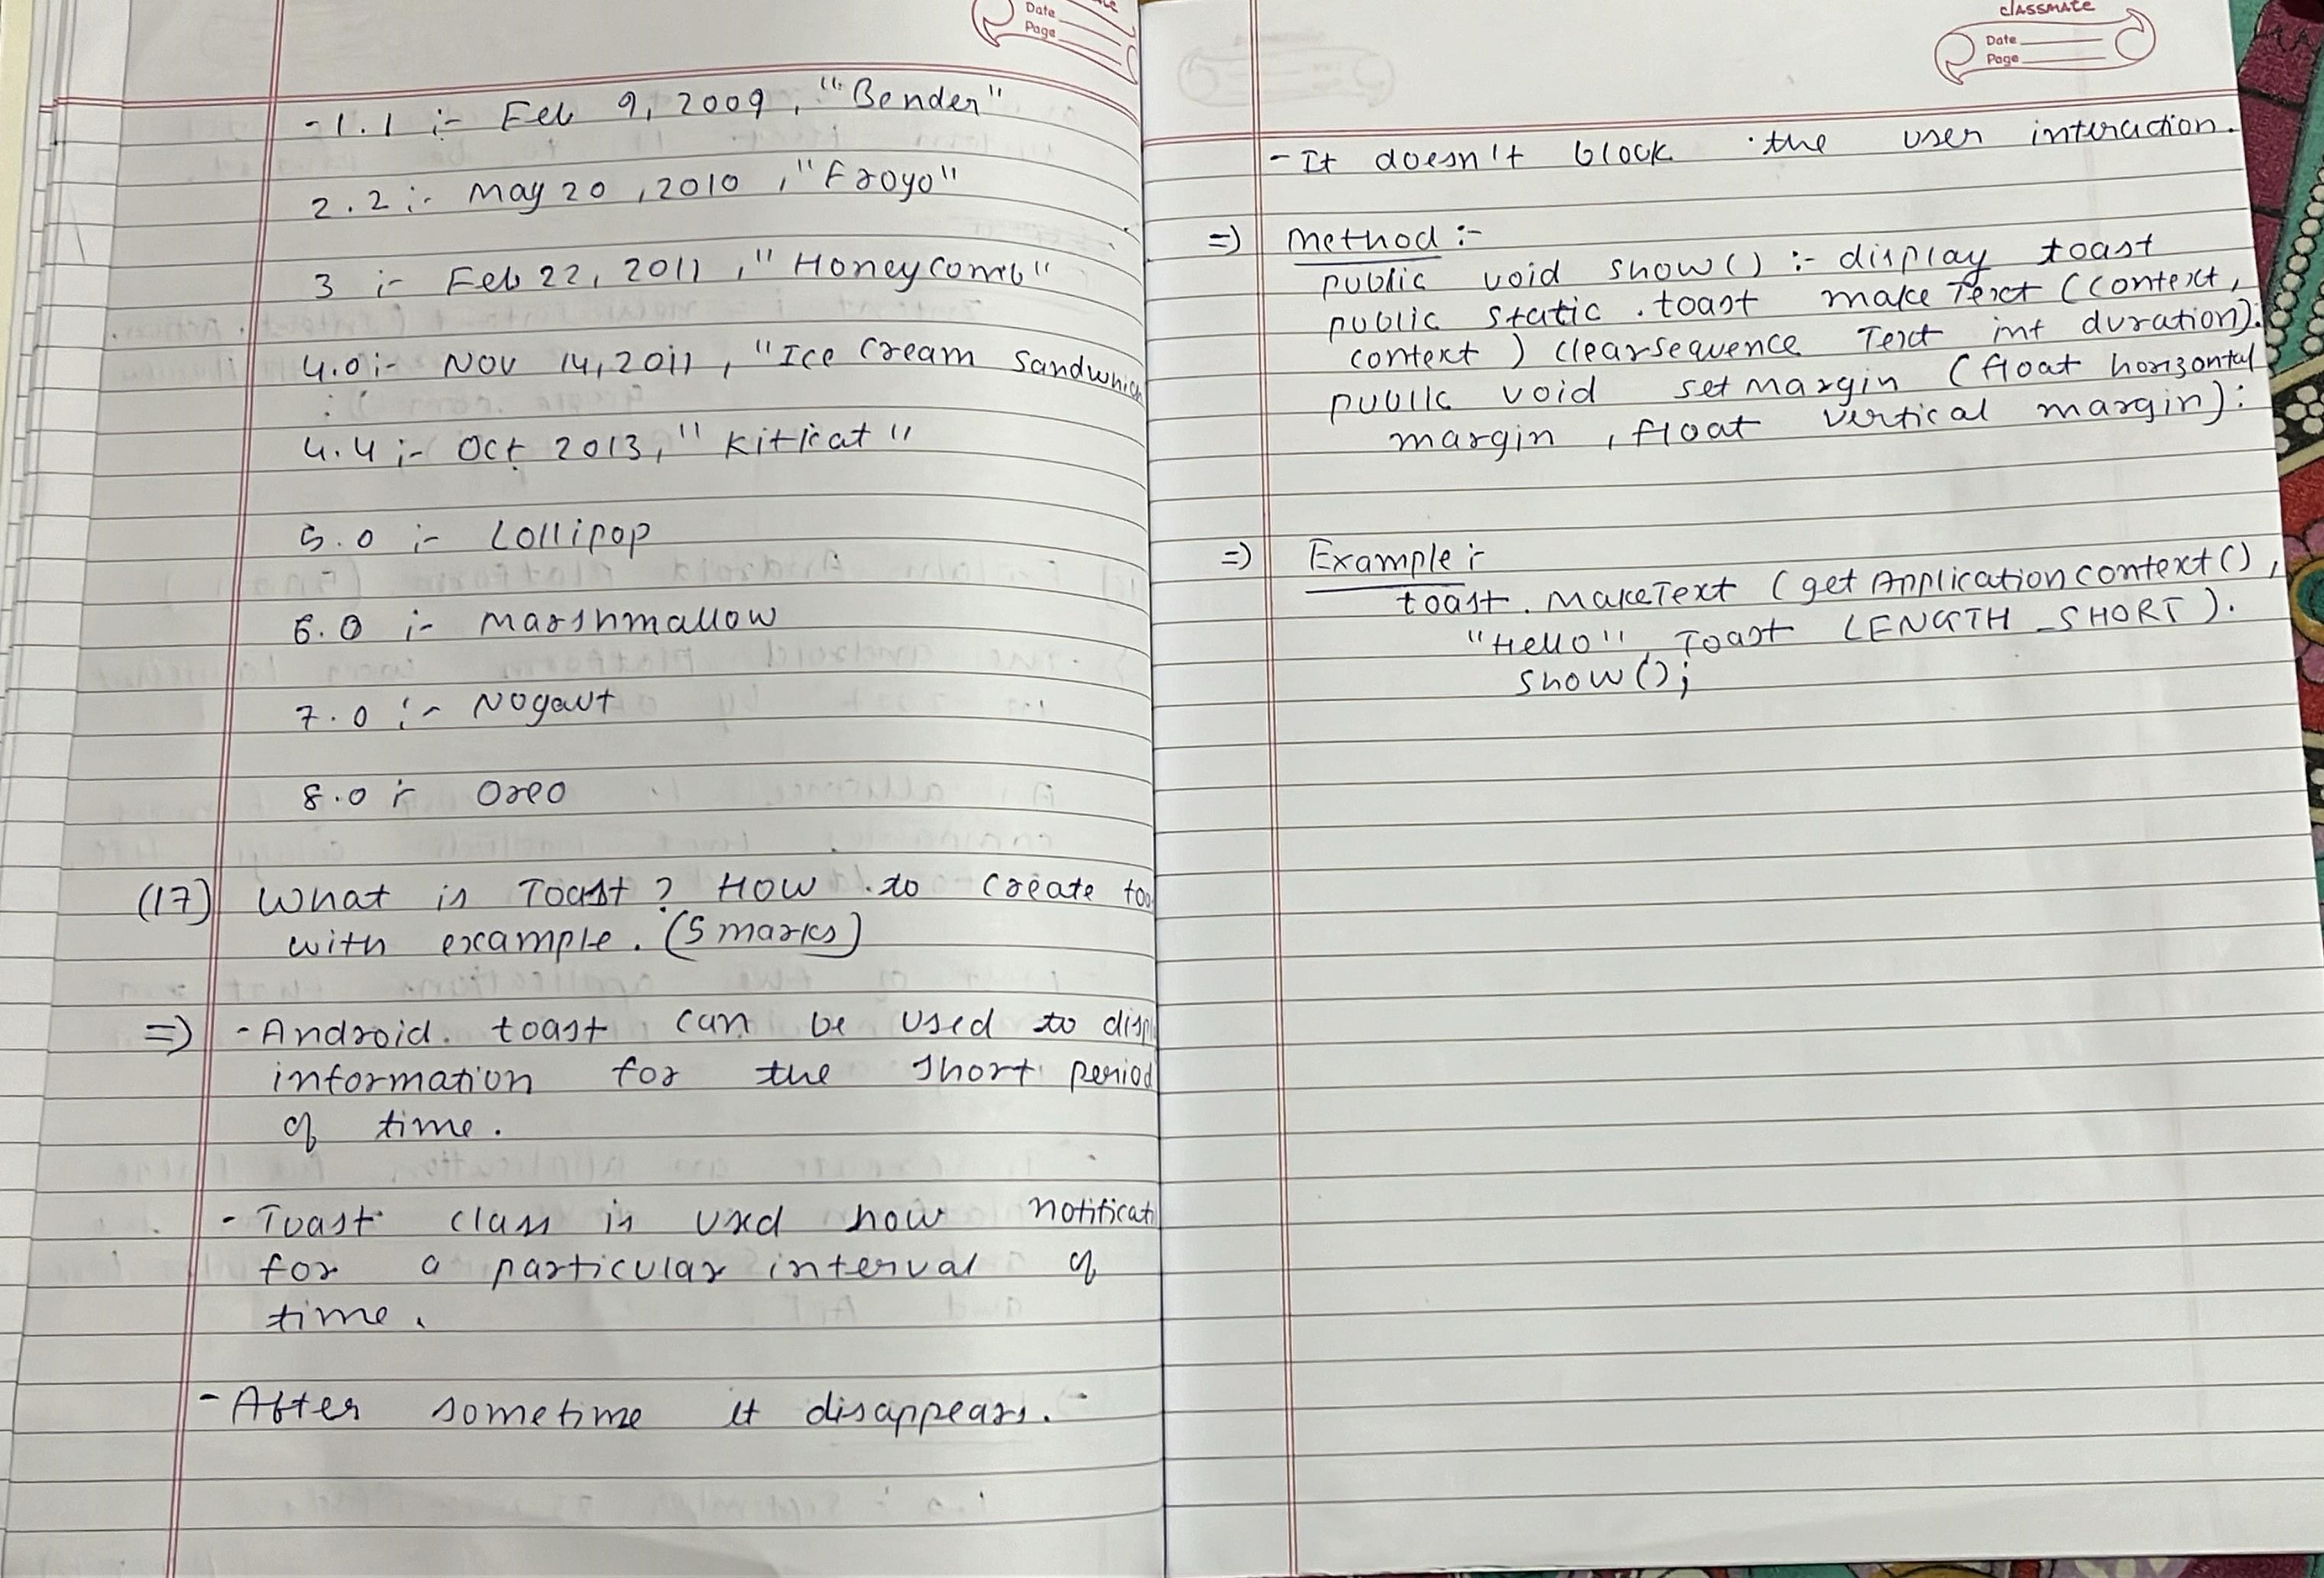 Date
Page
-1.1 :- Feb 9, 2009, "Bender"
2.2 :- May 20, 2010, "Froyo"
3 :- Feb 22, 2011, "Honeycomb"
4.0 :- Nov 14, 2011, "Ice Cream Sandwhich
4.4 :- Oct 2013, "kitkat"
5.0 :- Lollipop
6.0 :- Marshmallow
7.0 :- Nogaut
8.0 :- Oreo
(17) What is Toast? How to create toa
with example. (5 marks)
=) - Android toast can be used to displ
information for the short period
of time.
- Toast class is used how notificati
for a particular interval of
time.
- After sometime it disappears.
classmate
Date
Page
- It doesn't block the user interaction.
=) Method :-
public void show() :- display toast
public static toast makeText (context,
context) clearsequence Text int duration):
public void setmargin (float horizontal
margin, float vertical margin):
=) Example :-
toast. MakeText (getApplicationcontext(),
"Hello", Toast LENGTH_SHORT).
show();